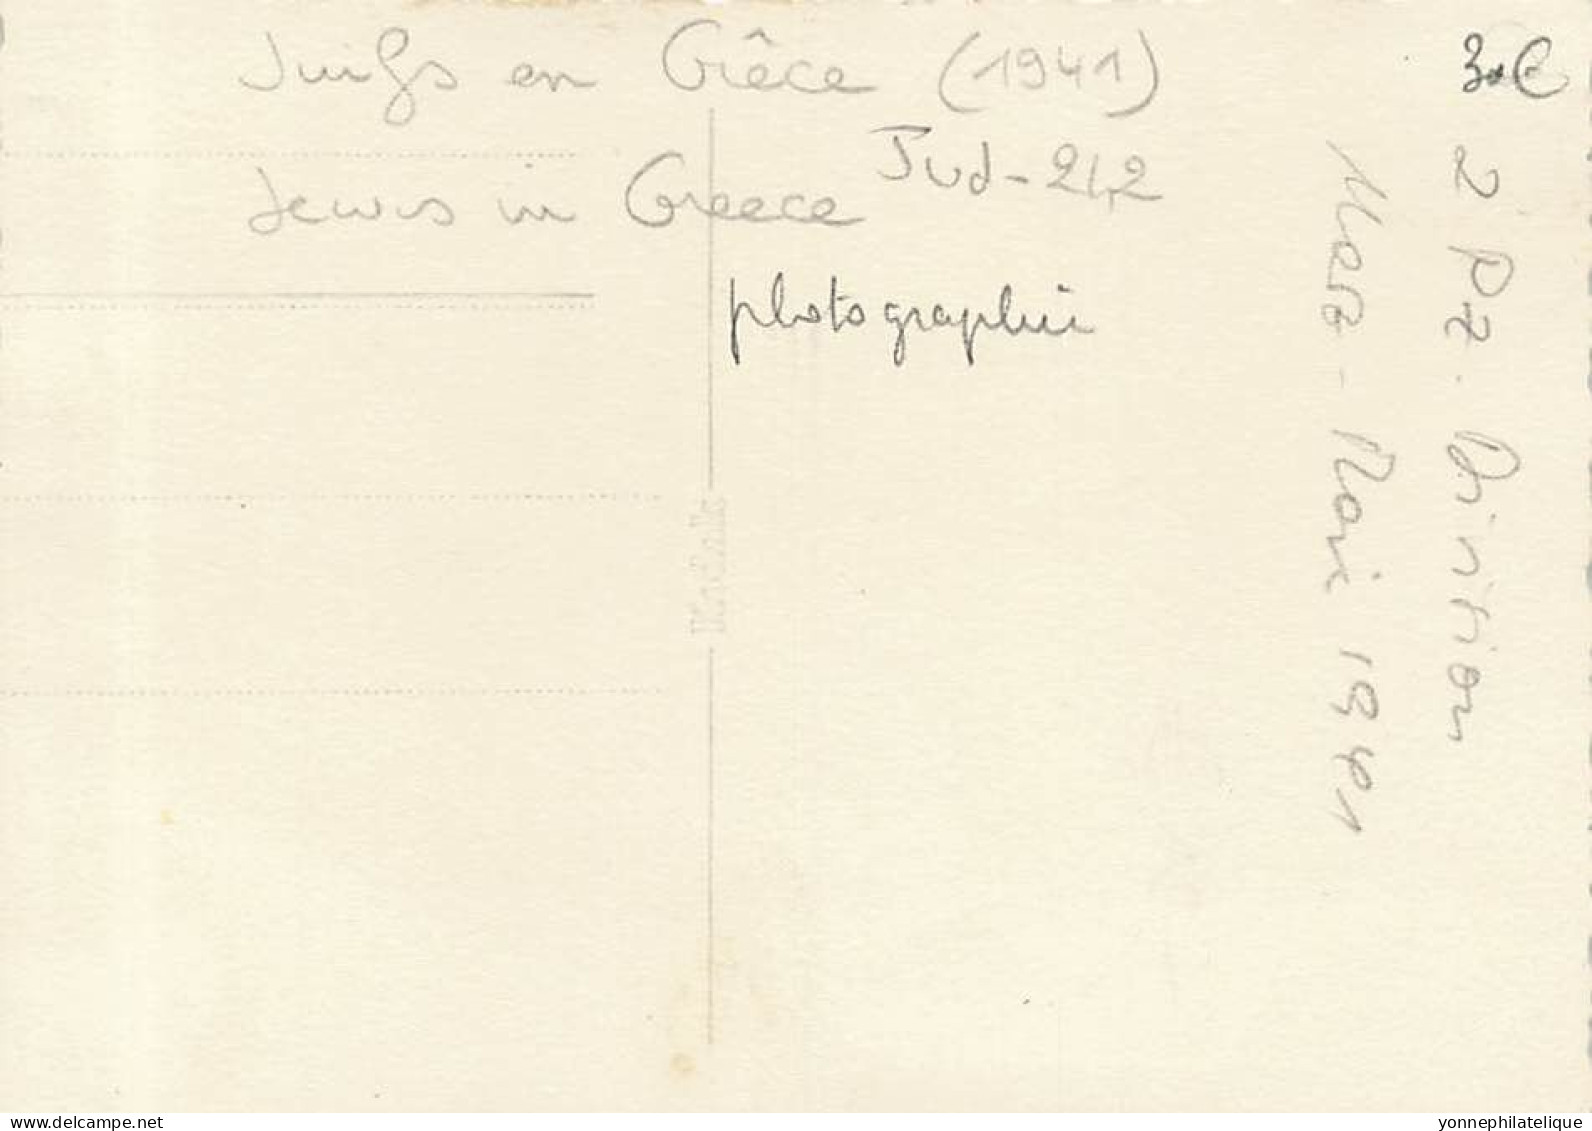 Juifs en Grèce (1941)
Jud-242
Jews in Greece
photographie
2 Pz. Division
März - Mai 1941
delcampe.net
yonnephilatelique